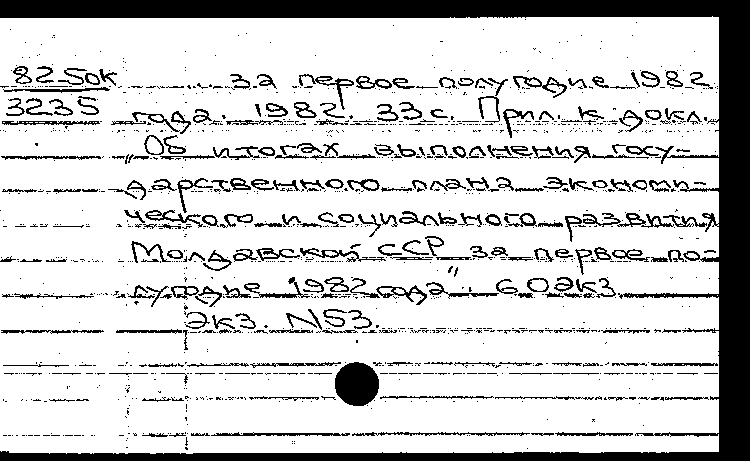 82-50к ... за первое полугодие 1982
3235 года. 1982. 33 с. Прил. к докл.
"Об итогах выполнения госу-
дарственного плана экономи-
ческого и социального развития
Молдавской ССР за первое по-
лугодие 1982 года". 60экз
Экз. N53.